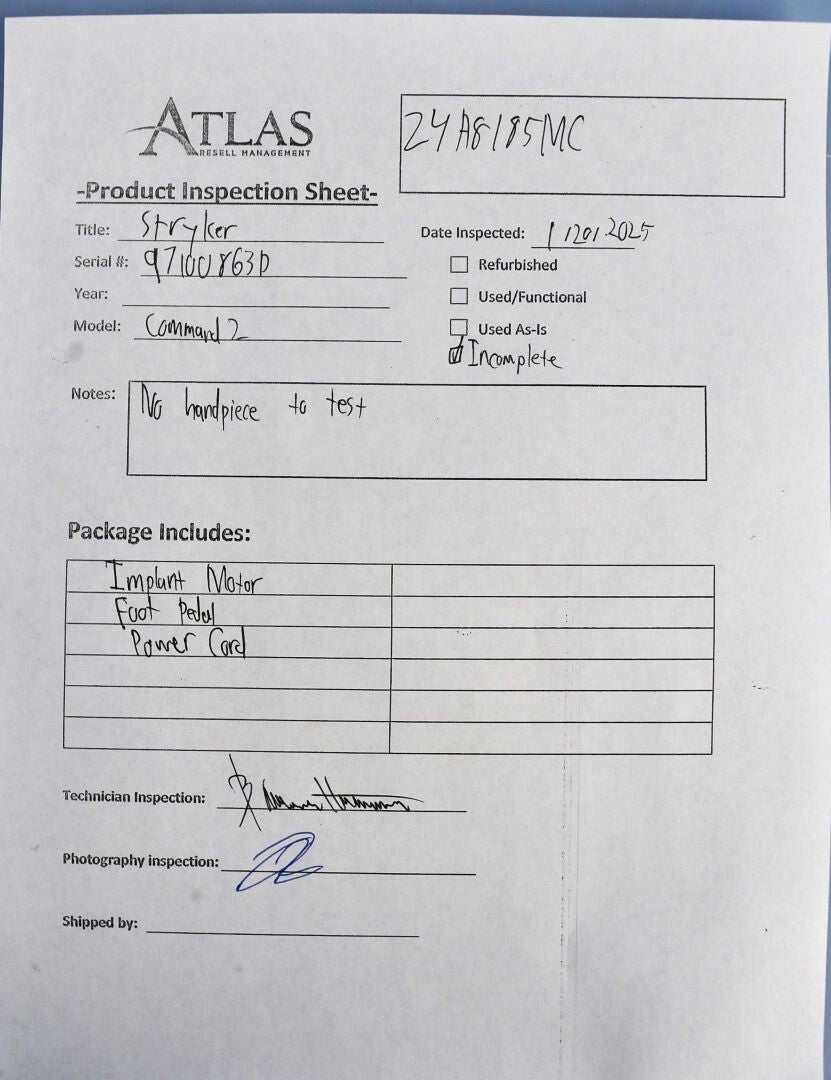 ATLAS
RESELL MANAGEMENT
24A8185MC
-Product Inspection Sheet-
Title: Stryker
Date Inspected: 1/20/2025
Serial #: 97100863D
Refurbished
Year:
Used/Functional
Model: Command 2
Used As-Is
Incomplete
Notes: No handpiece to test
Package Includes:
Implant Motor
Foot Pedal
Power Cord
Technician Inspection:
Photography inspection:
Shipped by: